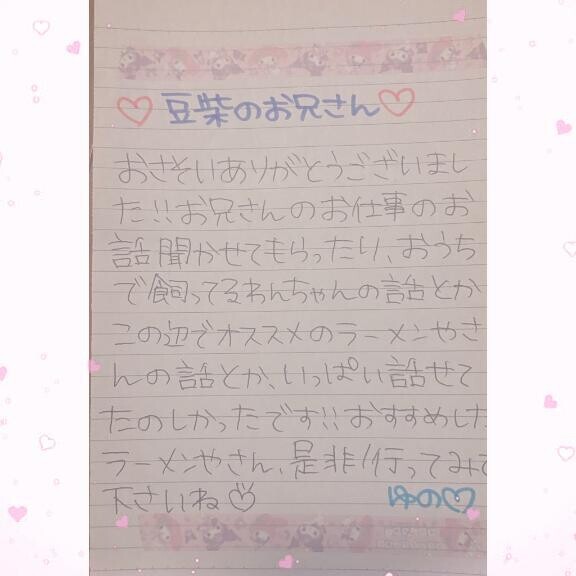 豆柴のお兄さん
おさそいありがとうございまし
た!!お兄さんのお仕事のお
話聞かせてもらったり、おうち
で飼ってるわんちゃんの話とか
この辺でオススメのラーメンやさ
んの話とか、いっぱい話せて
たのしかったです!!おすすめした
ラーメンやさん、是非行ってみて
下さいね♡
ゆの♡